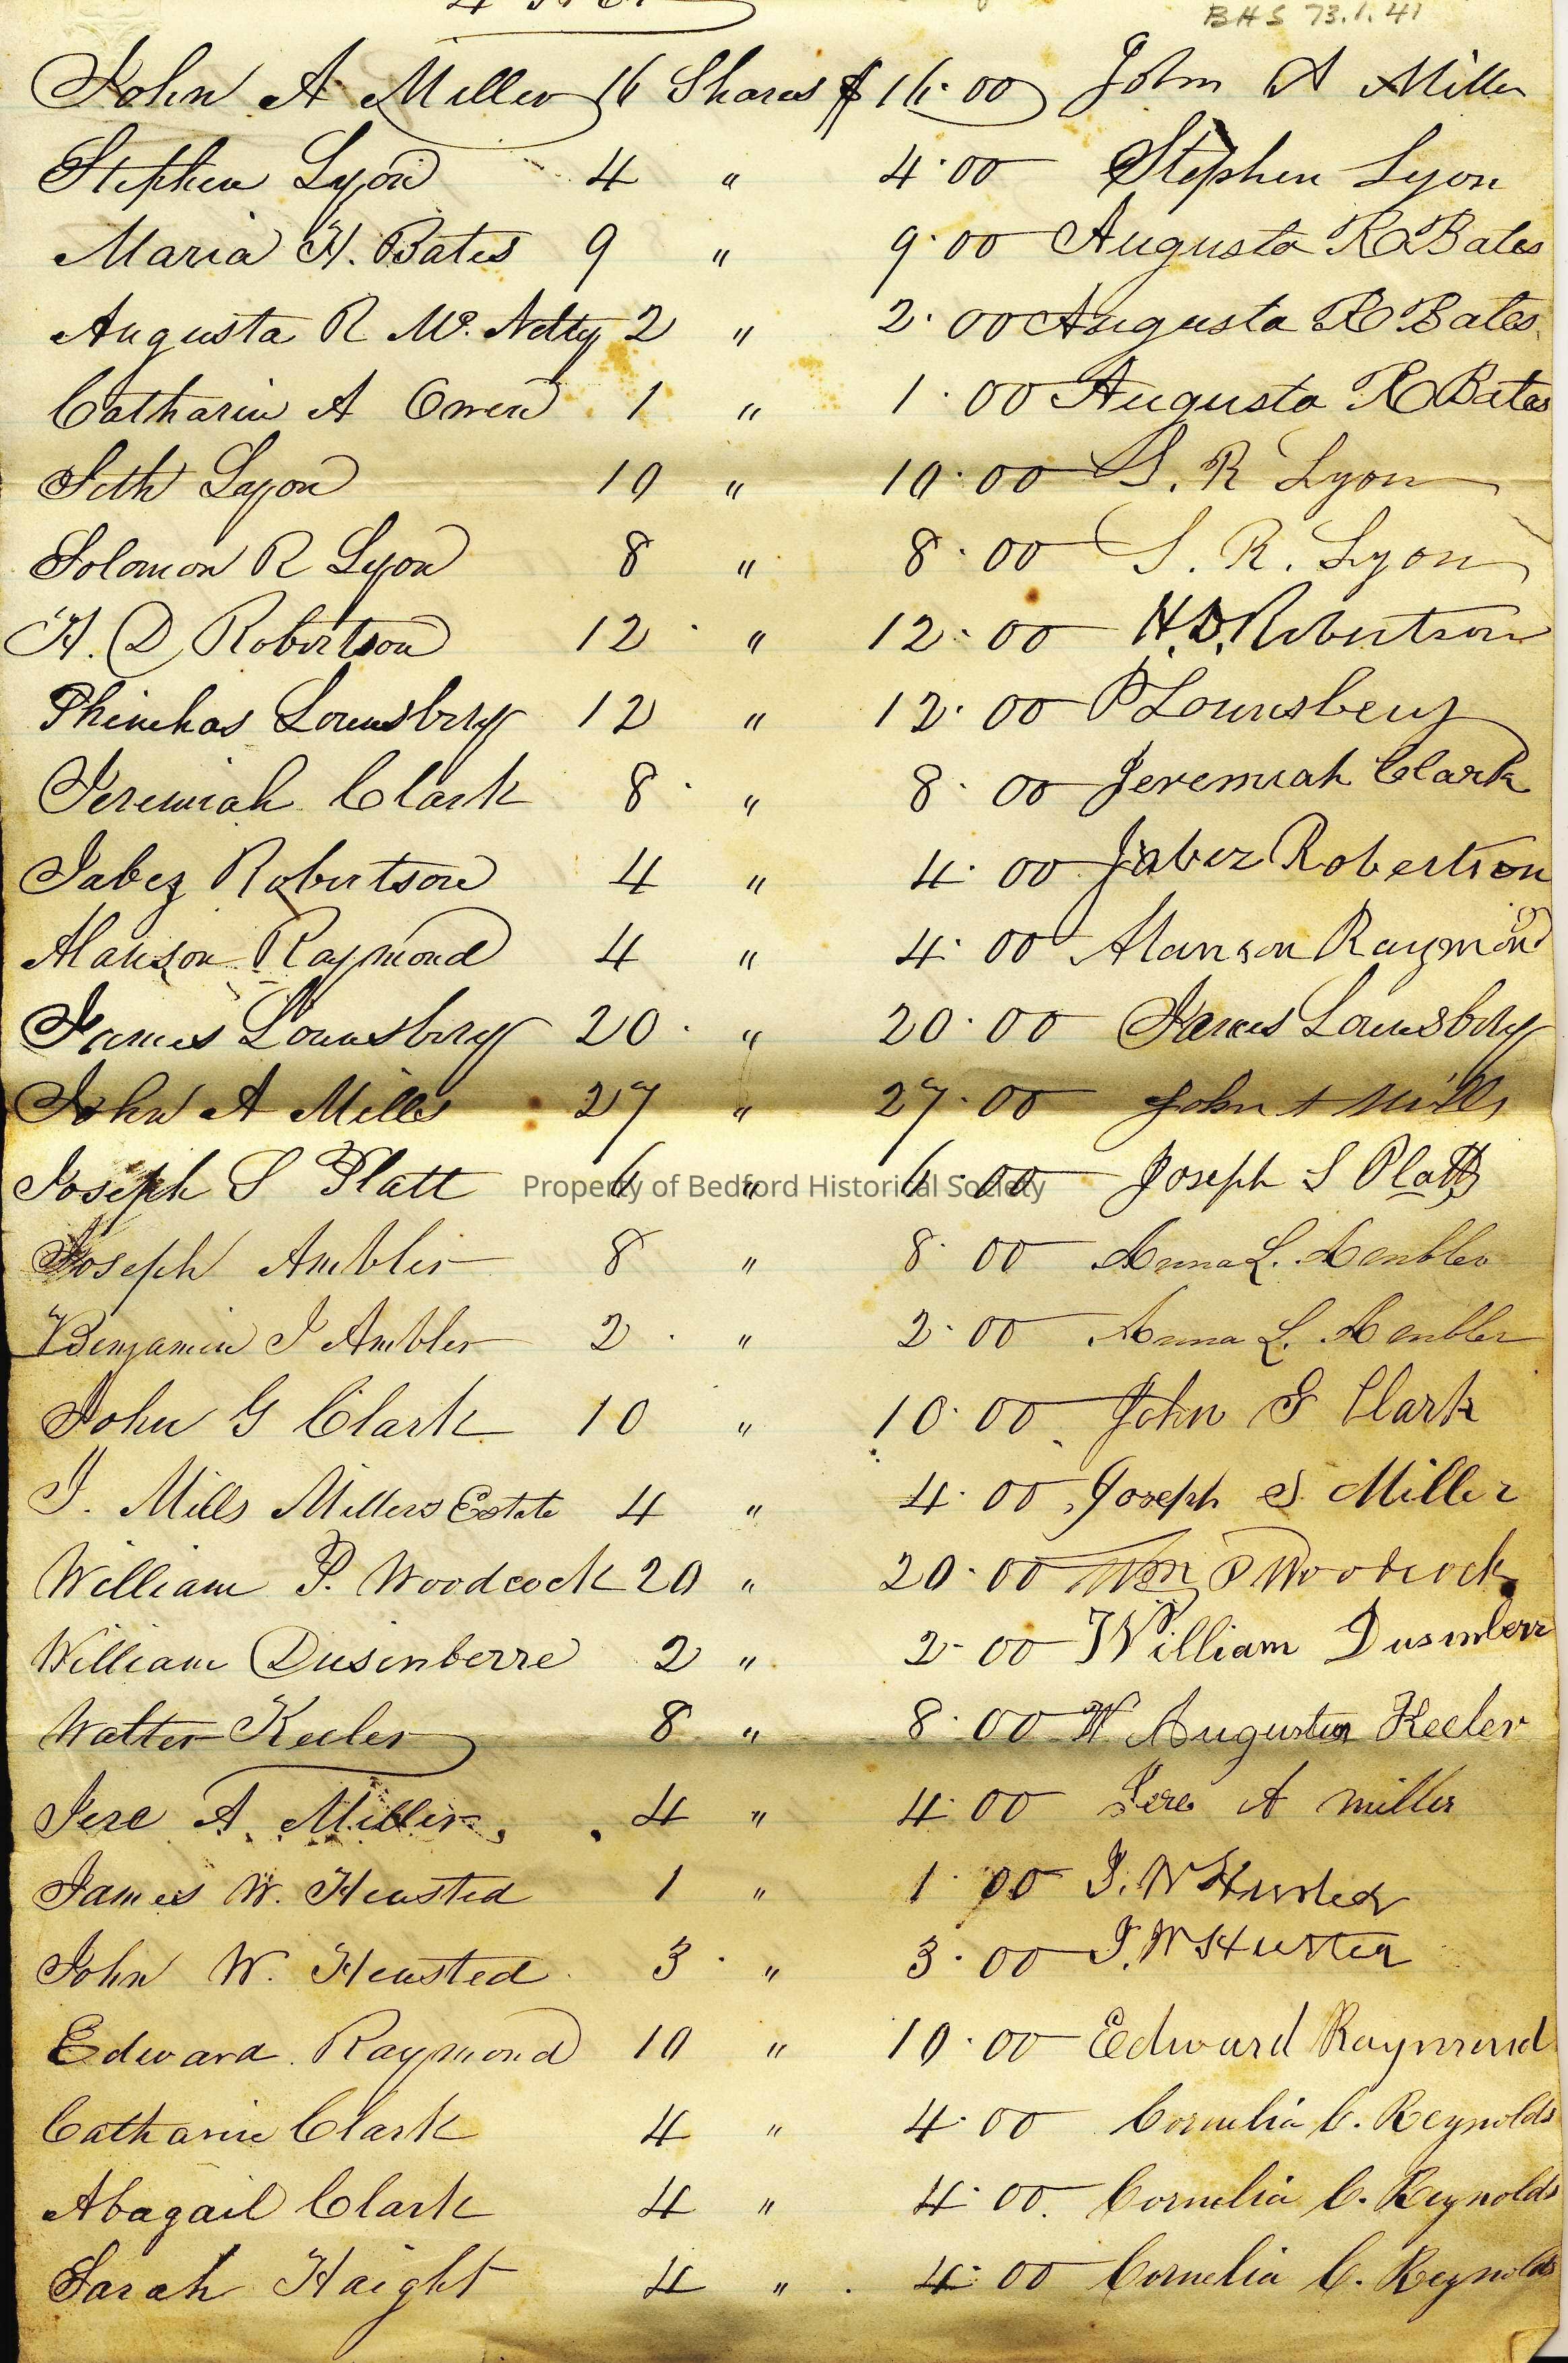 BHS 73.1.41
John A Miller 16 Shares $16.00 John A Miller
Stephen Lyon 4 " 4.00 Stephen Lyon
Maria H. Bates 9 " 9.00 Augusta R Bates
Augusta R Mc. Netty 2 " 2.00 Augusta R Bates
Catharin A Owen 1 " 1.00 Augusta R Bates
Seth Lyon 10 " 10.00 S. R Lyon
Solomon R Lyon 8 " 8.00 S. R. Lyon
H. D Robertson 12 " 12.00 H. D. Robertson
Phinehas Lounsbery 12 " 12.00 P Lounsbery
Jeremiah Clark 8 " 8.00 Jeremiah Clark
Jabez Robertson 4 " 4.00 Jabez Robertson
Alanson Raymond 4 " 4.00 Alanson Raymond
James Lounsbery 20 " 20.00 James Lounsbery
John A Mills 27 " 27.00 John A Mills
Joseph S Platt 6 " 6.00 Joseph S Platt
Property of Bedford Historical Society
Joseph Ambler 8 " 8.00 Anna L. Ambler
Benjamin I Ambler 2 " 2.00 Anna L. Ambler
John G Clark 10 " 10.00 John G Clark
J. Mills Millers Estate 4 " 4.00 Joseph S. Miller
William P. Woodcock 20 " 20.00 Wm P Woodcock
William Dusinberre 2 " 2.00 William Dusinberr
Walter Keeler 8 " 8.00 W Augustus Keeler
Jere A. Miller 4 " 4.00 Jere A miller
James W. Heusted 1 " 1.00 J. W Husted
John W. Heusted 3 " 3.00 J. W Husted
Edward Raymond 10 " 10.00 Edward Raymond
Catharine Clark 4 " 4.00 Cornelia C. Reynolds
Abagail Clark 4 " 4.00 Cornelia C. Reynolds
Sarah Haight 4 " 4.00 Cornelia C. Reynolds